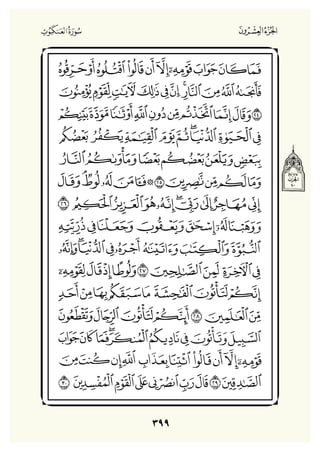 الجُزْءُ العِشْرُونَ
سُورَةُ العَنكَبُوتِ
فَمَا كَانَ جَوَابَ قَوْمِهِۦٓ إِلَّآ أَن قَالُوا۟ ٱقْتُلُوهُ أَوْ حَرِّقُوهُ
فَأَنجَىٰهُ ٱللَّهُ مِنَ ٱلنَّارِ ۚ إِنَّ فِى ذَٰلِكَ لَـَٔايَـٰتٍ لِّقَوْمٍ يُؤْمِنُونَ
٢٤ وَقَالَ إِنَّمَا ٱتَّخَذْتُم مِّن دُونِ ٱللَّهِ أَوْثَـٰنًا مَّوَدَّةَ بَيْنِكُمْ
فِى ٱلْحَيَوٰةِ ٱلدُّنْيَا ۖ ثُمَّ يَوْمَ ٱلْقِيَـٰمَةِ يَكْفُرُ بَعْضُكُم
بِبَعْضٍ وَيَلْعَنُ بَعْضُكُم بَعْضًا وَمَأْوَىٰكُمُ ٱلنَّارُ
وَمَا لَكُم مِّن نَّـٰصِرِينَ ٢٥ ۞ فَـَٔامَنَ لَهُۥ لُوطٌ ۘ وَقَالَ
إِنِّى مُهَاجِرٌ إِلَىٰ رَبِّىٓ ۖ إِنَّهُۥ هُوَ ٱلْعَزِيزُ ٱلْحَكِيمُ ٢٦
وَوَهَبْنَا لَهُۥٓ إِسْحَـٰقَ وَيَعْقُوبَ وَجَعَلْنَا فِى ذُرِّيَّتِهِ
ٱلنُّبُوَّةَ وَٱلْكِتَـٰبَ وَءَاتَيْنَـٰهُ أَجْرَهُۥ فِى ٱلدُّنْيَا ۖ وَإِنَّهُۥ
فِى ٱلْـَٔاخِرَةِ لَمِنَ ٱلصَّـٰلِحِينَ ٢٧ وَلُوطًا إِذْ قَالَ لِقَوْمِهِۦٓ
إِنَّكُمْ لَتَأْتُونَ ٱلْفَـٰحِشَةَ مَا سَبَقَكُم بِهَا مِنْ أَحَدٍ
مِّنَ ٱلْعَـٰلَمِينَ ٢٨ أَئِنَّكُمْ لَتَأْتُونَ ٱلرِّجَالَ وَتَقْطَعُونَ
ٱلسَّبِيلَ وَتَأْتُونَ فِى نَادِيكُمُ ٱلْمُنكَرَ ۖ فَمَا كَانَ جَوَابَ
قَوْمِهِۦٓ إِلَّآ أَن قَالُوا۟ ٱئْتِنَا بِعَذَابِ ٱللَّهِ إِن كُنتَ مِنَ
ٱلصَّـٰدِقِينَ ٢٩ قَالَ رَبِّ ٱنصُرْنِى عَلَى ٱلْقَوْمِ ٱلْمُفْسِدِينَ ٣٠
٣٩٩